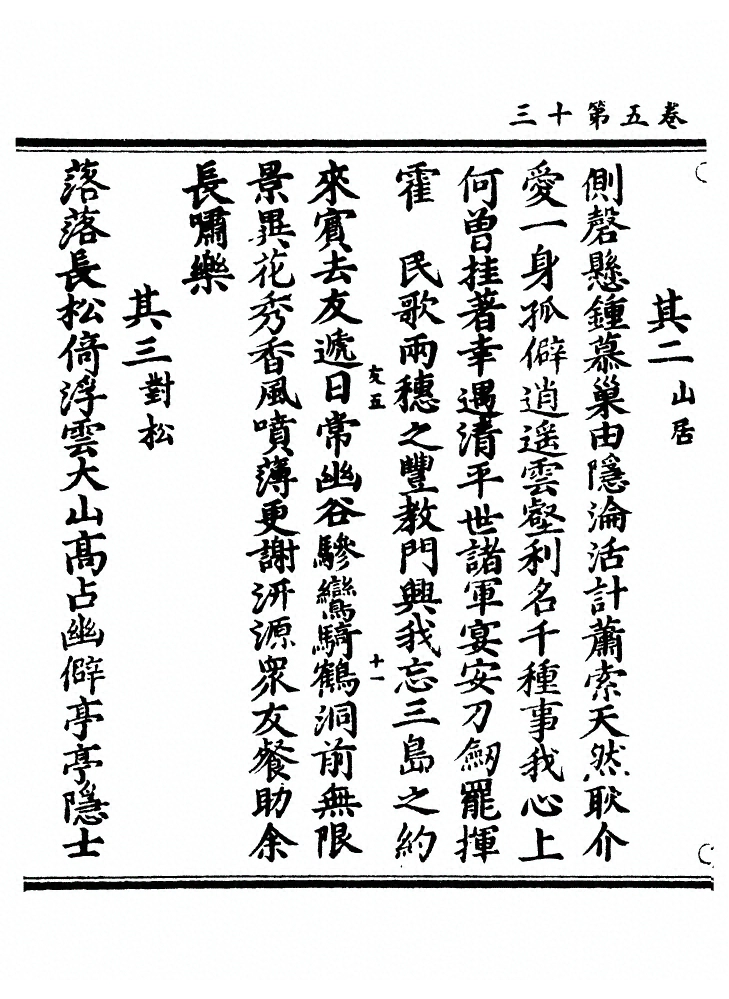 卷五第十三
其二山居
側磬懸鍾慕巢由隱淪活計蕭索天然耿介
愛一身孤僻逍遥雲壑利名千種事我心上
何曾挂著幸遇清平世諸軍宴安刀劒罷揮
霍　民歌兩穗之豐教門興我忘三島之約
來賓去友遞日常幽谷驂鸞騎鶴洞前無限
友五
十一
景異花秀香風噴薄更謝汧源衆友餐助余
長嘯樂
其三對松
落落長松倚浮雲大山高占幽僻亭亭隱士